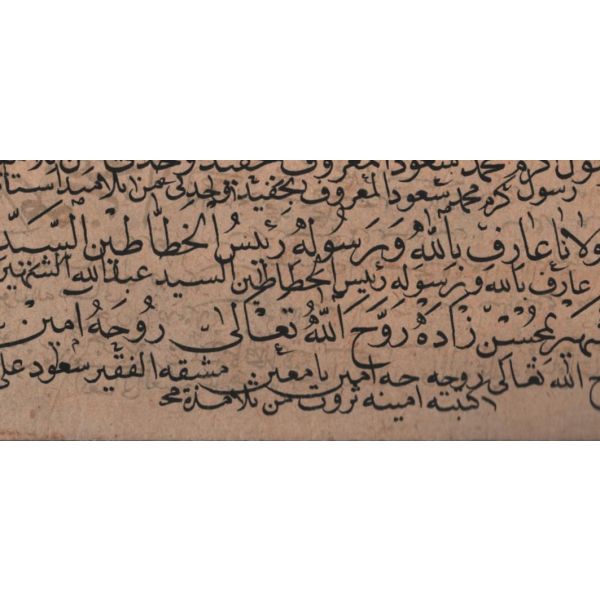 رسول كرم محمد سعود المعروف بحفيد وحدتى من تلاميذ استا
مولانا عارف بالله وبرسوله رئيس الخطاطين السيد
عارف بالله وبرسوله رئيس الخطاطين السيد عبدالله الشهير
شهير بمحسن زاده روح الله تعالى روحه امين
ح الله تعالى روحه حه امين يا معين مشقه الفقير سعود على
كتبته امينه ثروت من تلامذه مح